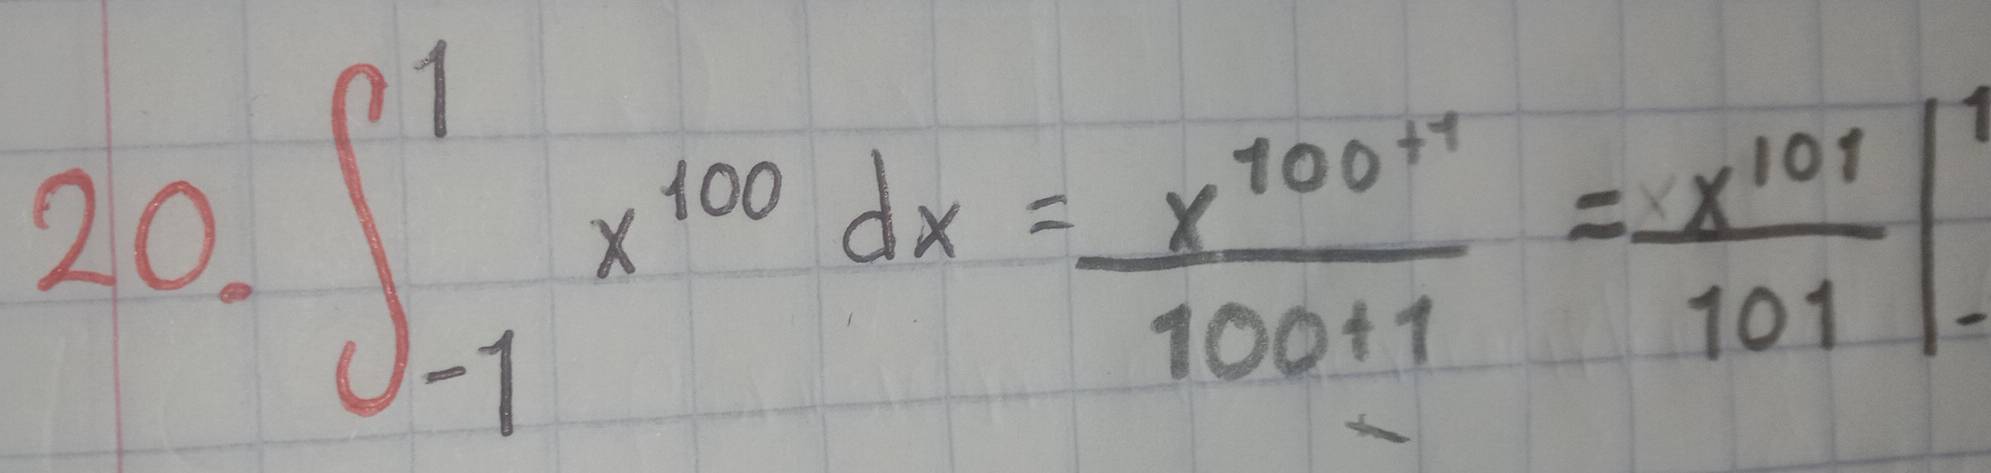 20. ∫_{-1}^{1} x^{100} dx = \frac{x^{100+1}}{100+1} = \frac{x^{101}}{101} |_{-}^{1}